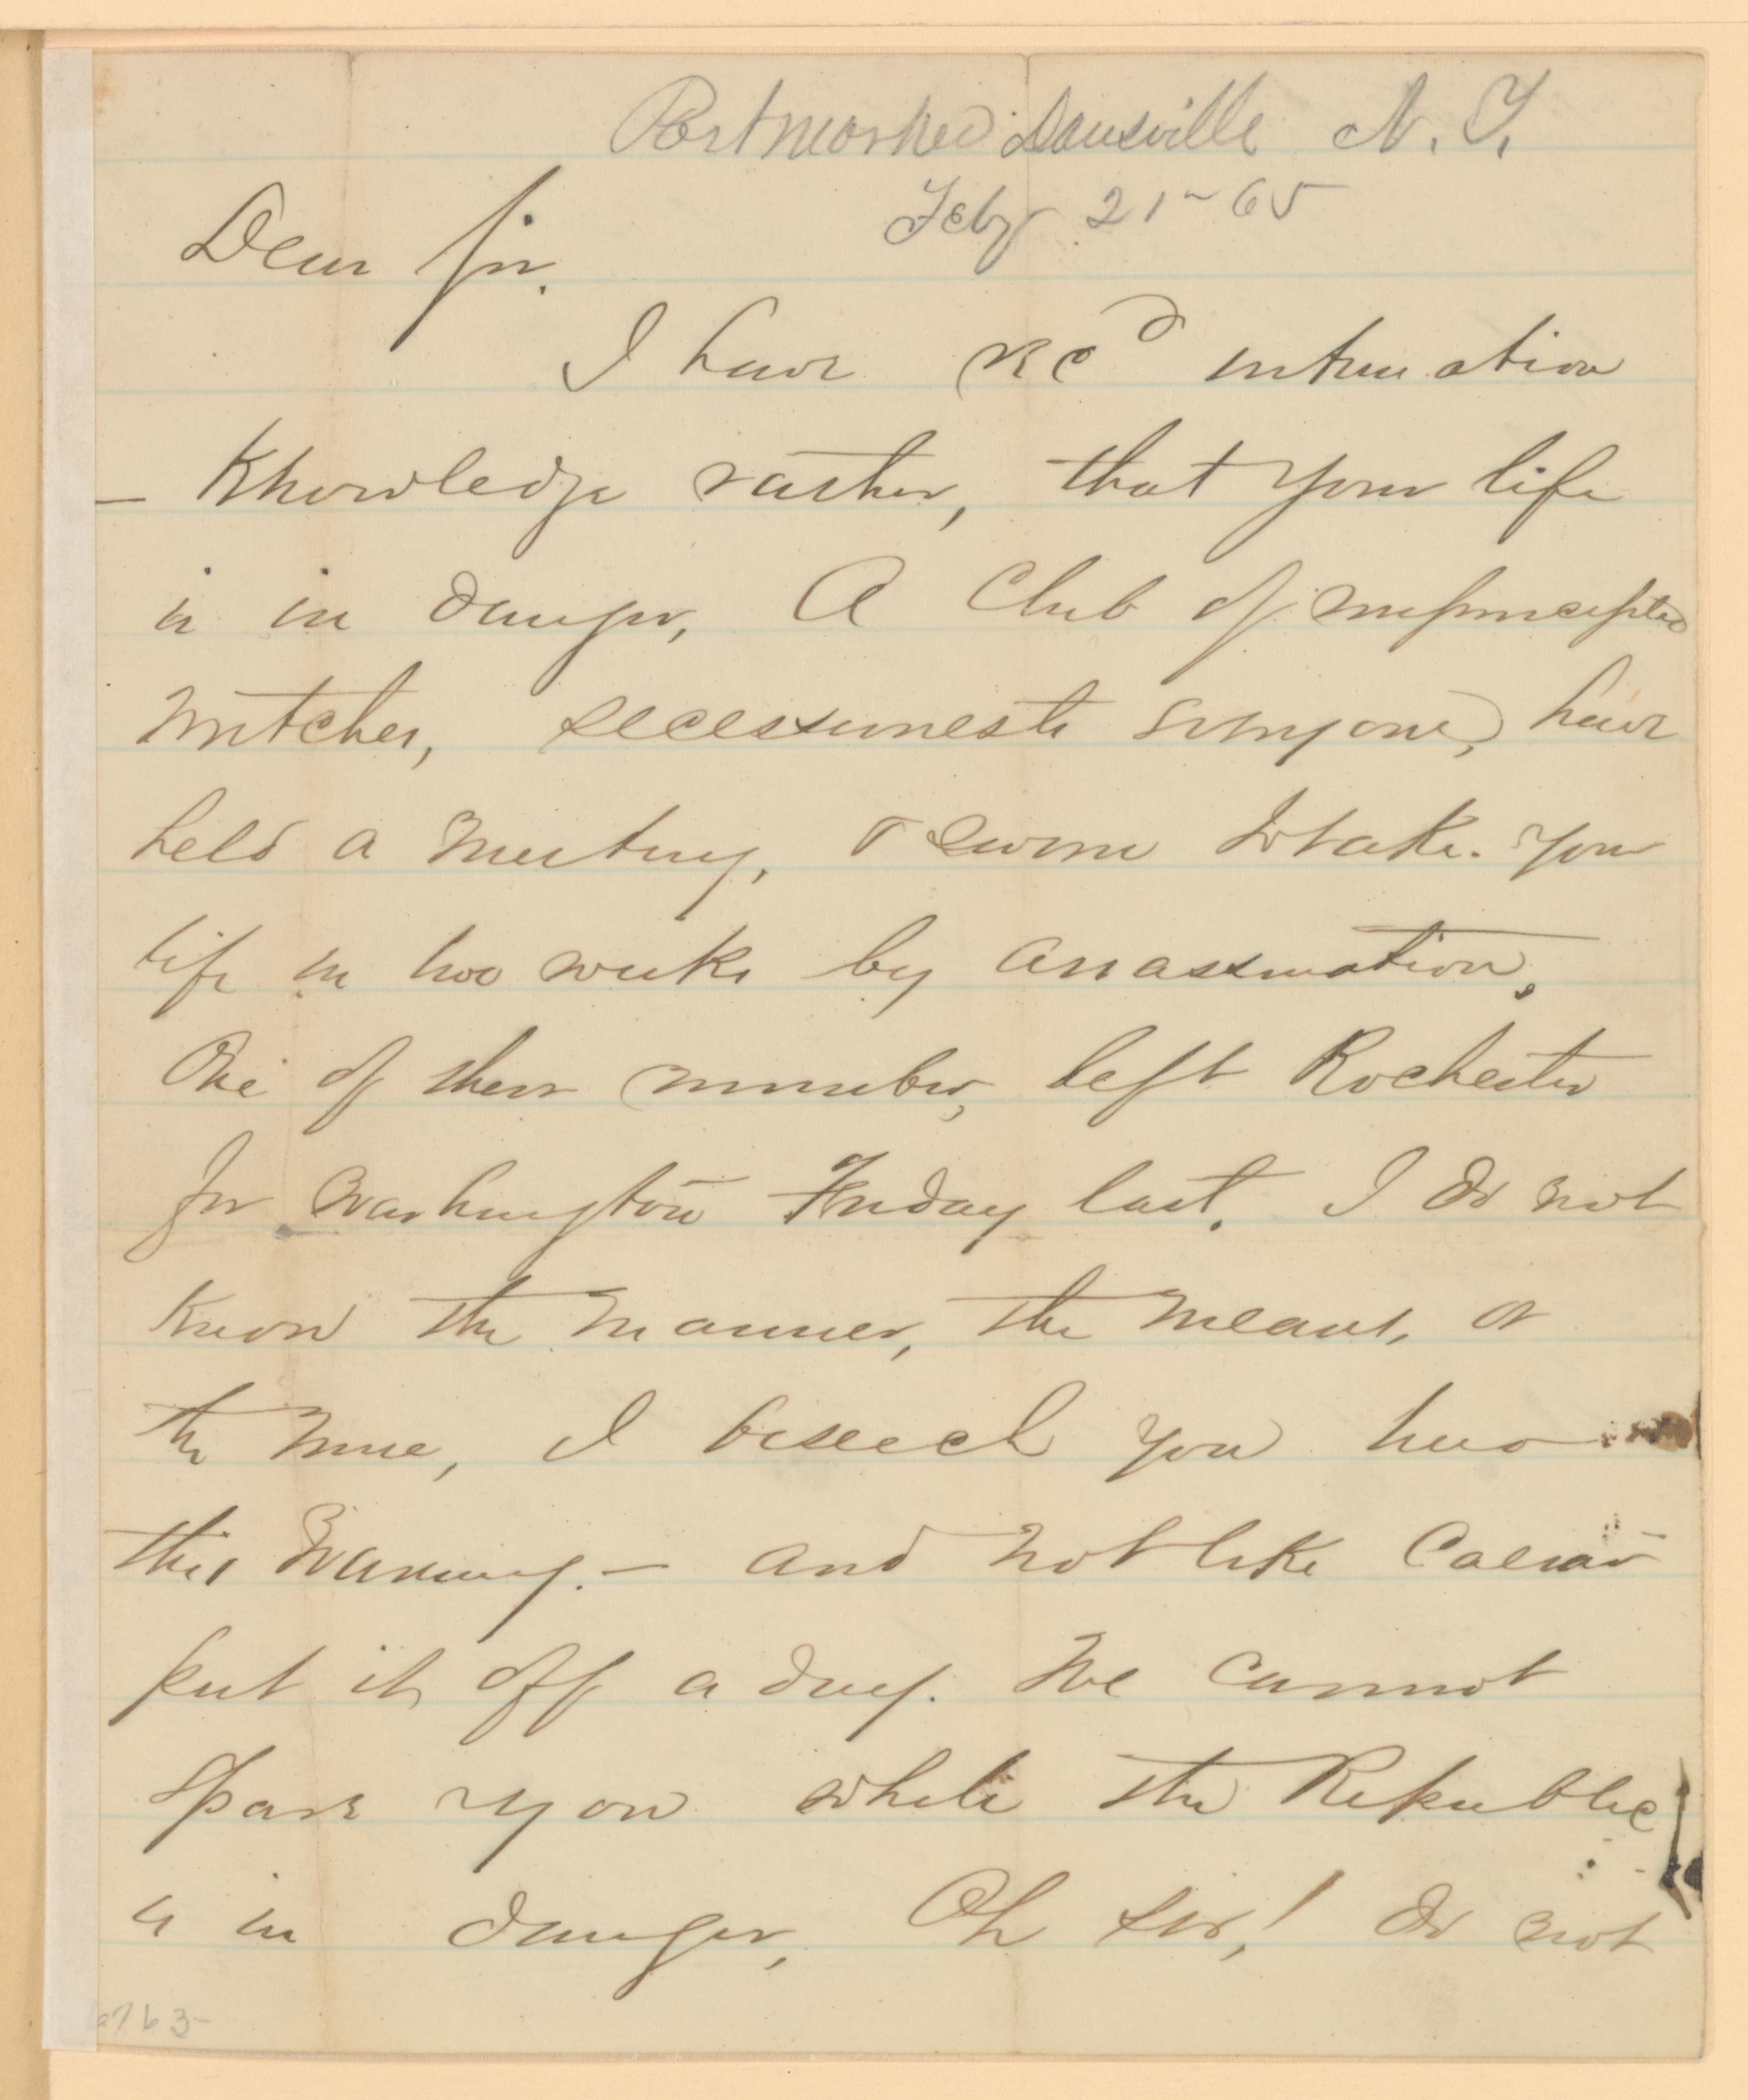 Postmarked Dansville N. Y.
Feby 21 - 65
Dear Sir.
I have recd intimation
- Knowledge rather, that your life
is in danger, A Club of unprincipled
wretches, secessionests everyone, have
held a meeting, & sworn to take your
life in two weeks by assassination,
One of their number, left Rochester
for Washington Friday last. I do not
know the manner, the means, or
the time, I beseech you hear
this warning. - and not like Caesar
put it off a day. We cannot
spare you while the Republic
is in danger, Oh sir,! do not
763-